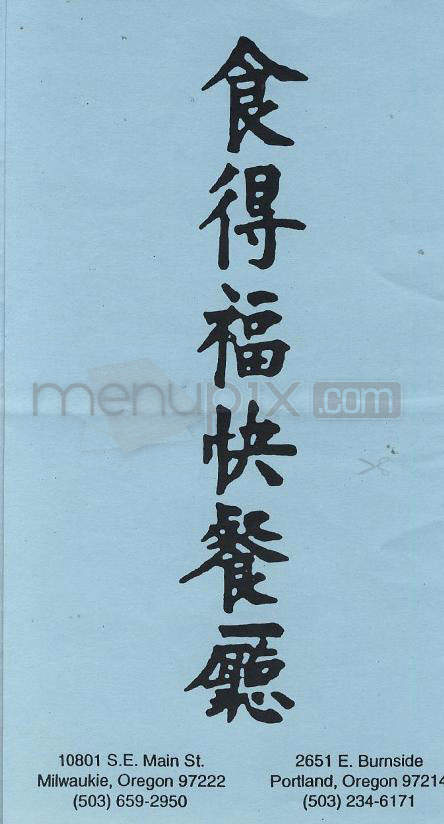 食得福快餐廳
menupix.com
10801 S.E. Main St.
Milwaukie, Oregon 97222
(503) 659-2950
2651 E. Burnside
Portland, Oregon 97214
(503) 234-6171